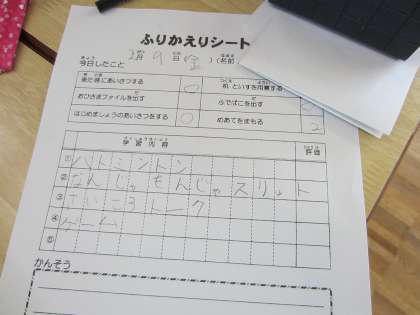 ふりかえりシート
今日したこと 2月9日金 （名前
来た時にあいさつする ○ 机、といすを用意する
おひさまファイルを出す ふでばこを出す
はじめましょうのあいさつをする ○ めあてをまもる 2
学習内容 評価
① バトミントン
② なんじゃもんじゃスリット
③ さいころトーク
④ ゲーム
⑤
かんそう